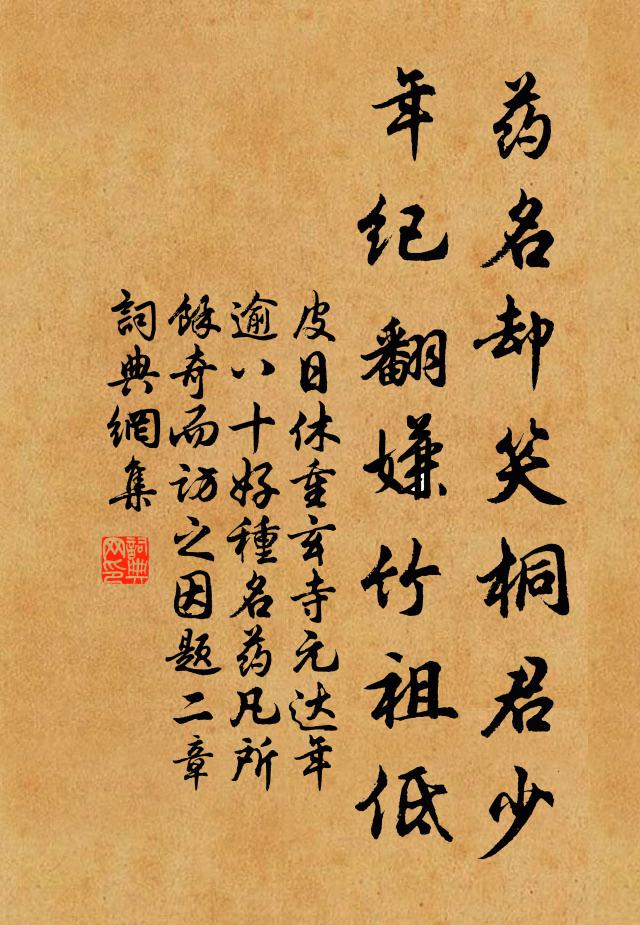 药名却笑桐君少
年纪翻嫌竹祖低
皮日休重玄寺元达年
逾八十好種名药凡所
餘奇而访之因题二章
詞典網集
詞典
网印